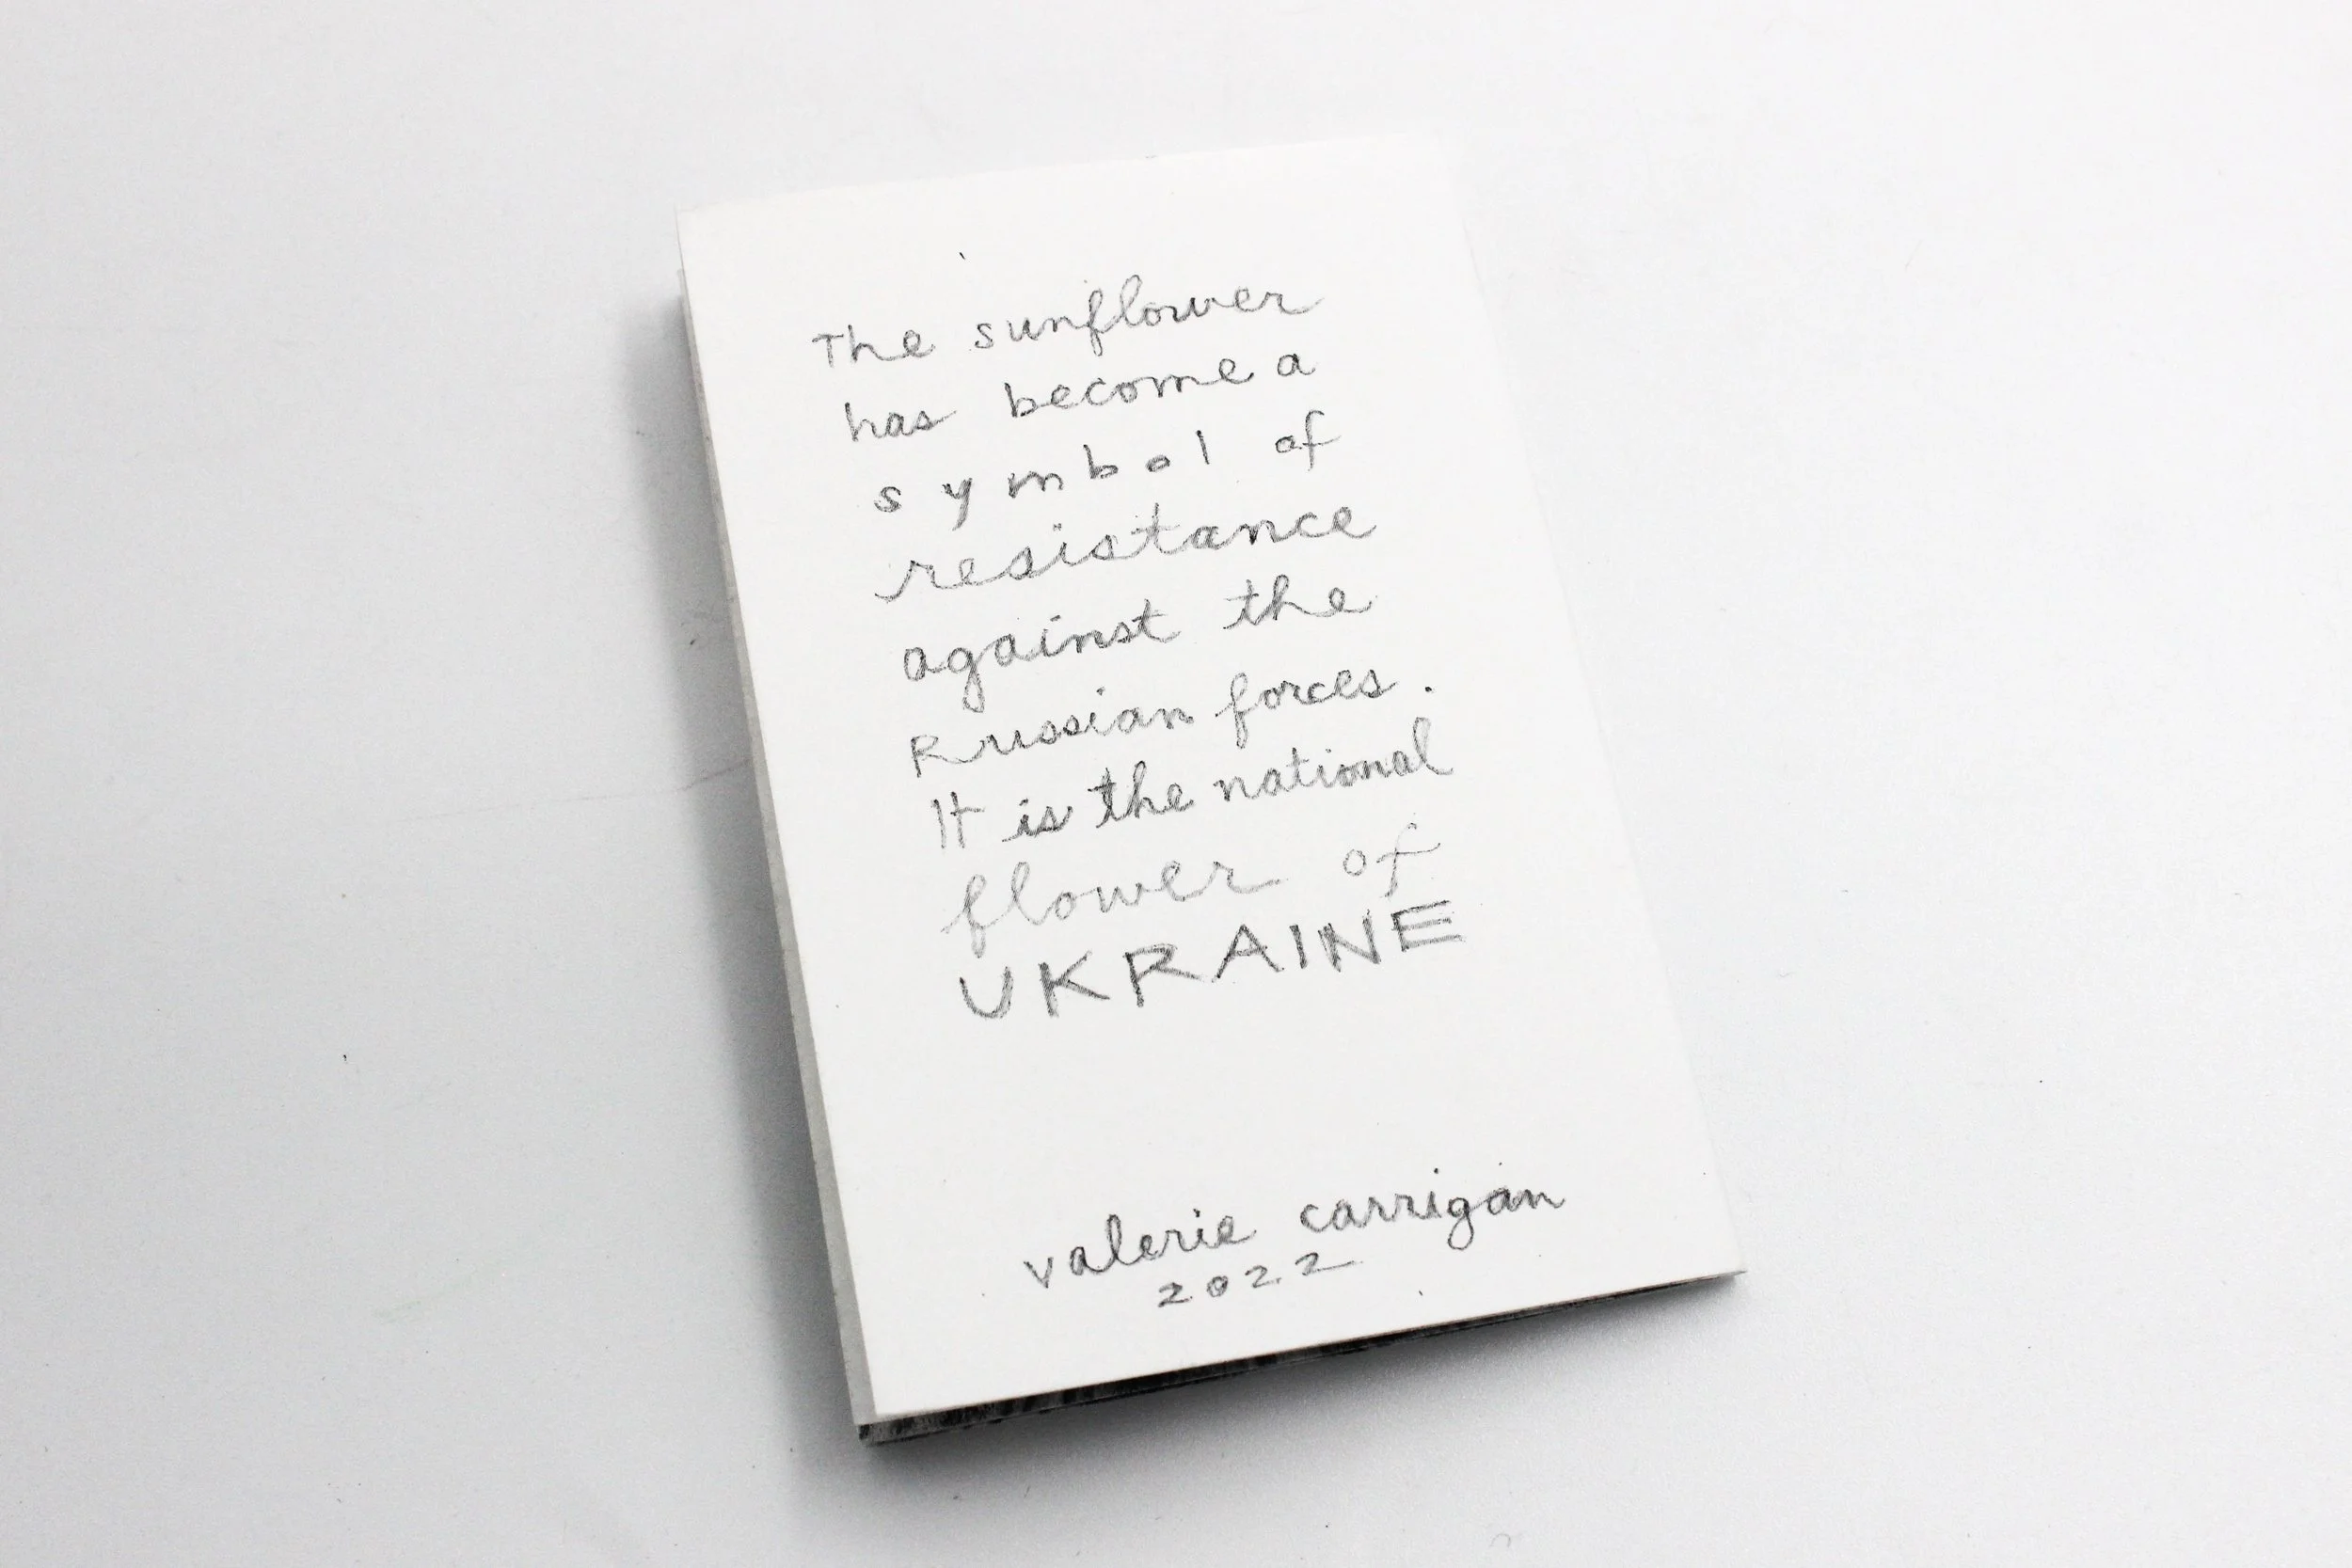 The sunflower
has become a
symbol of
resistance
against the
Russian forces.
It is the national
flower of
UKRAINE
valerie carrigan
2022